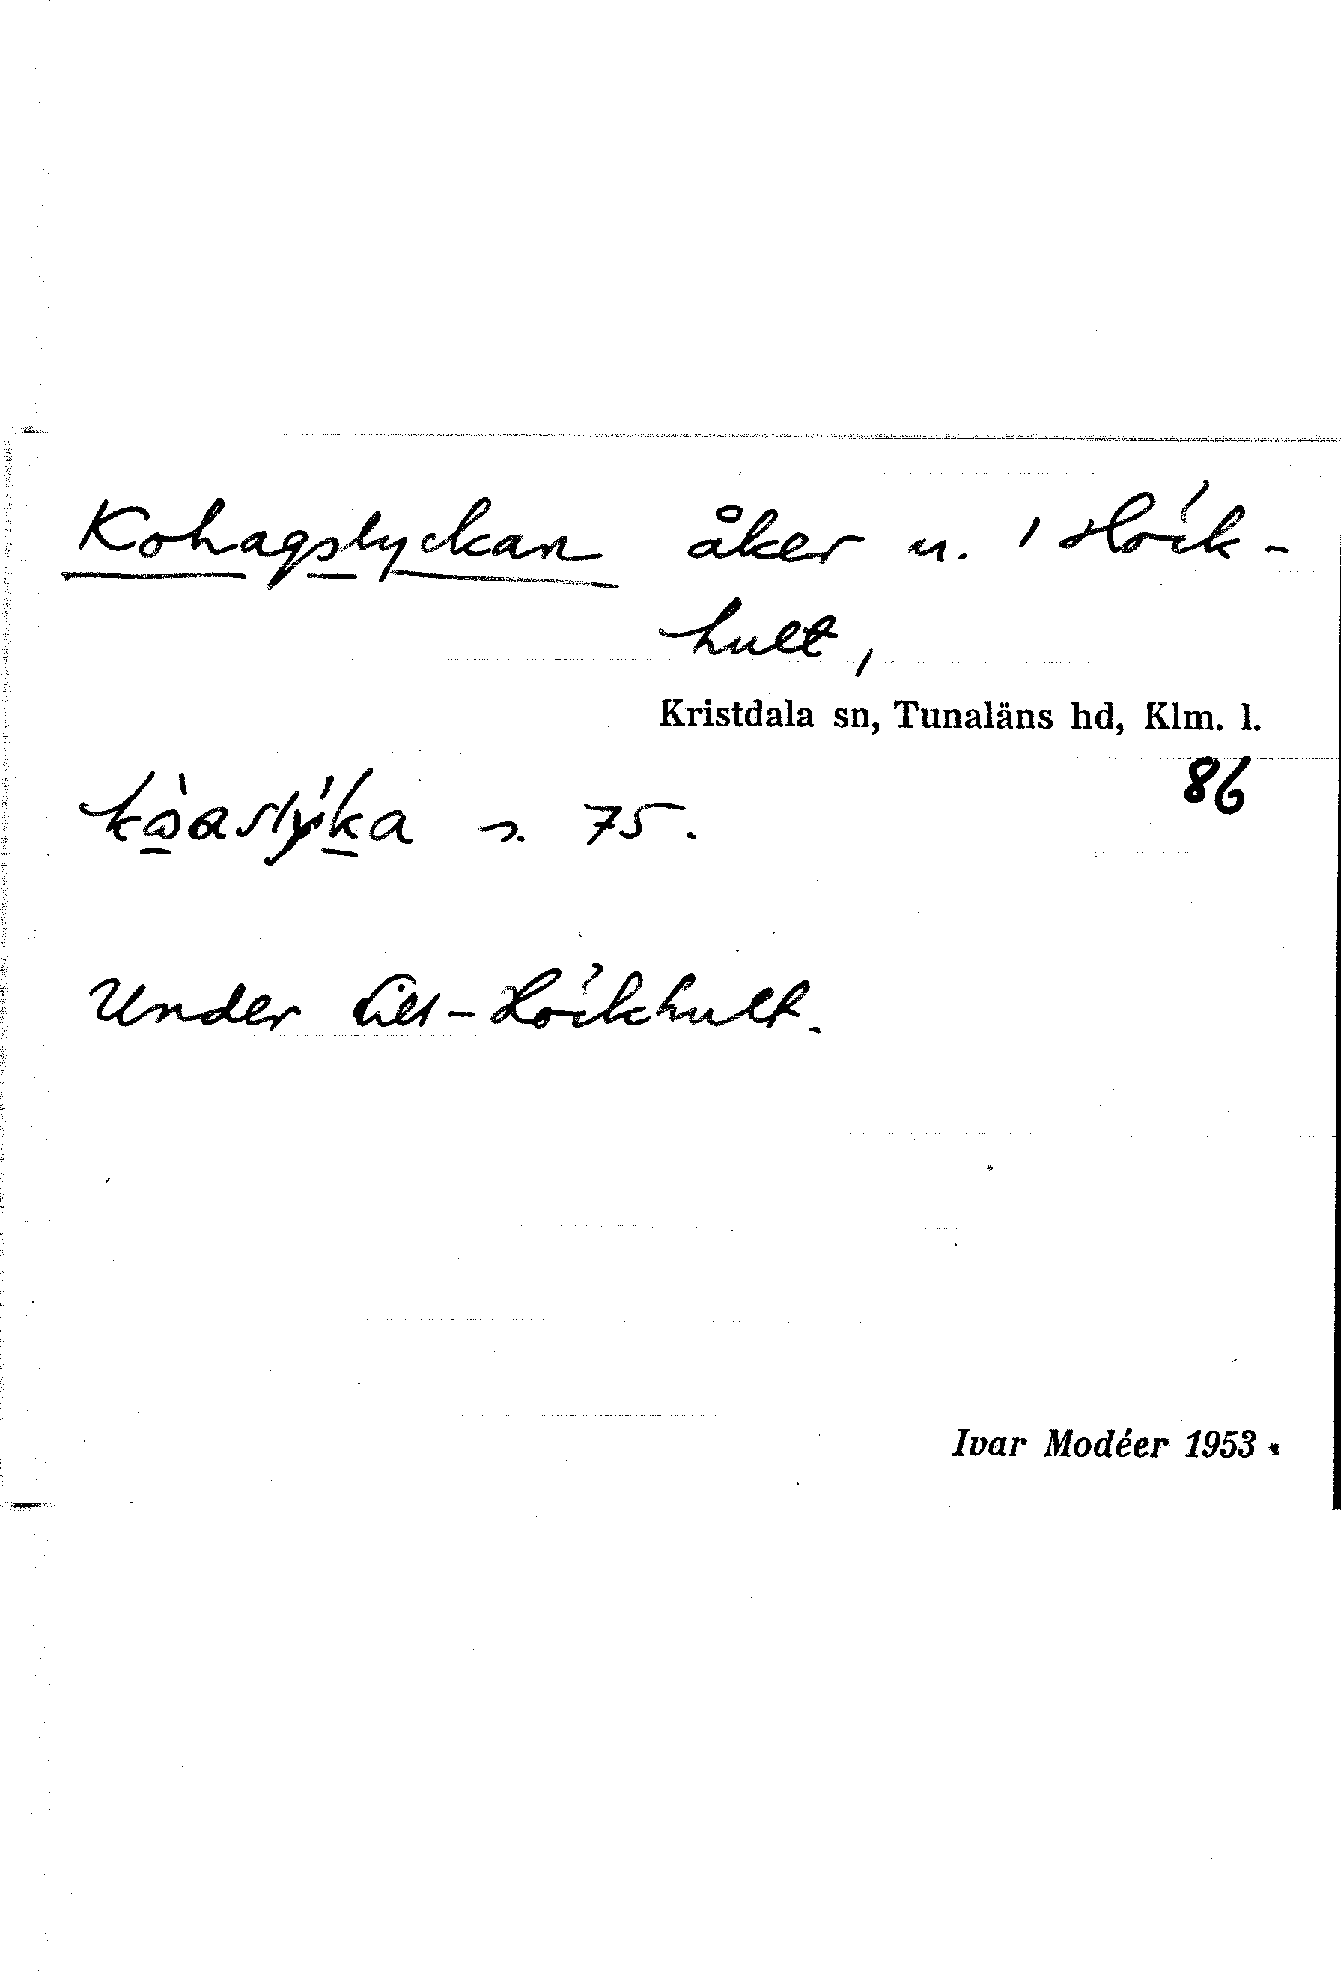 Kohagslyckan åker u. Höck-
hult,
Kristdala sn, Tunaläns hd, Klm. l.
86
s. 75.
Under Lill-Höckhult.
Ivar Modéer 1953.